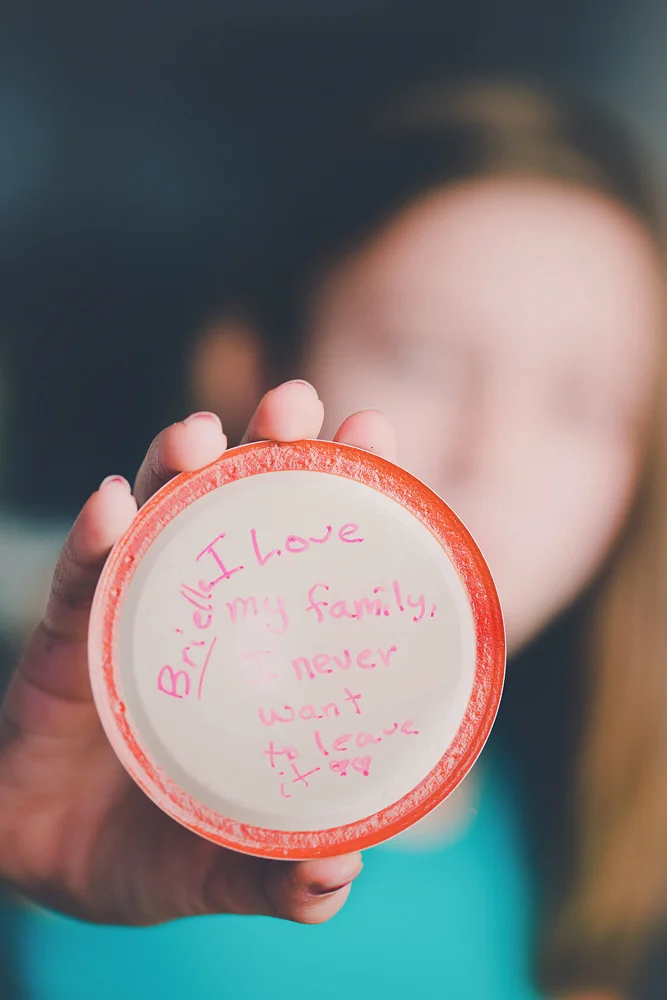 Brielle
I Love
my family,
I never
want
to leave
it